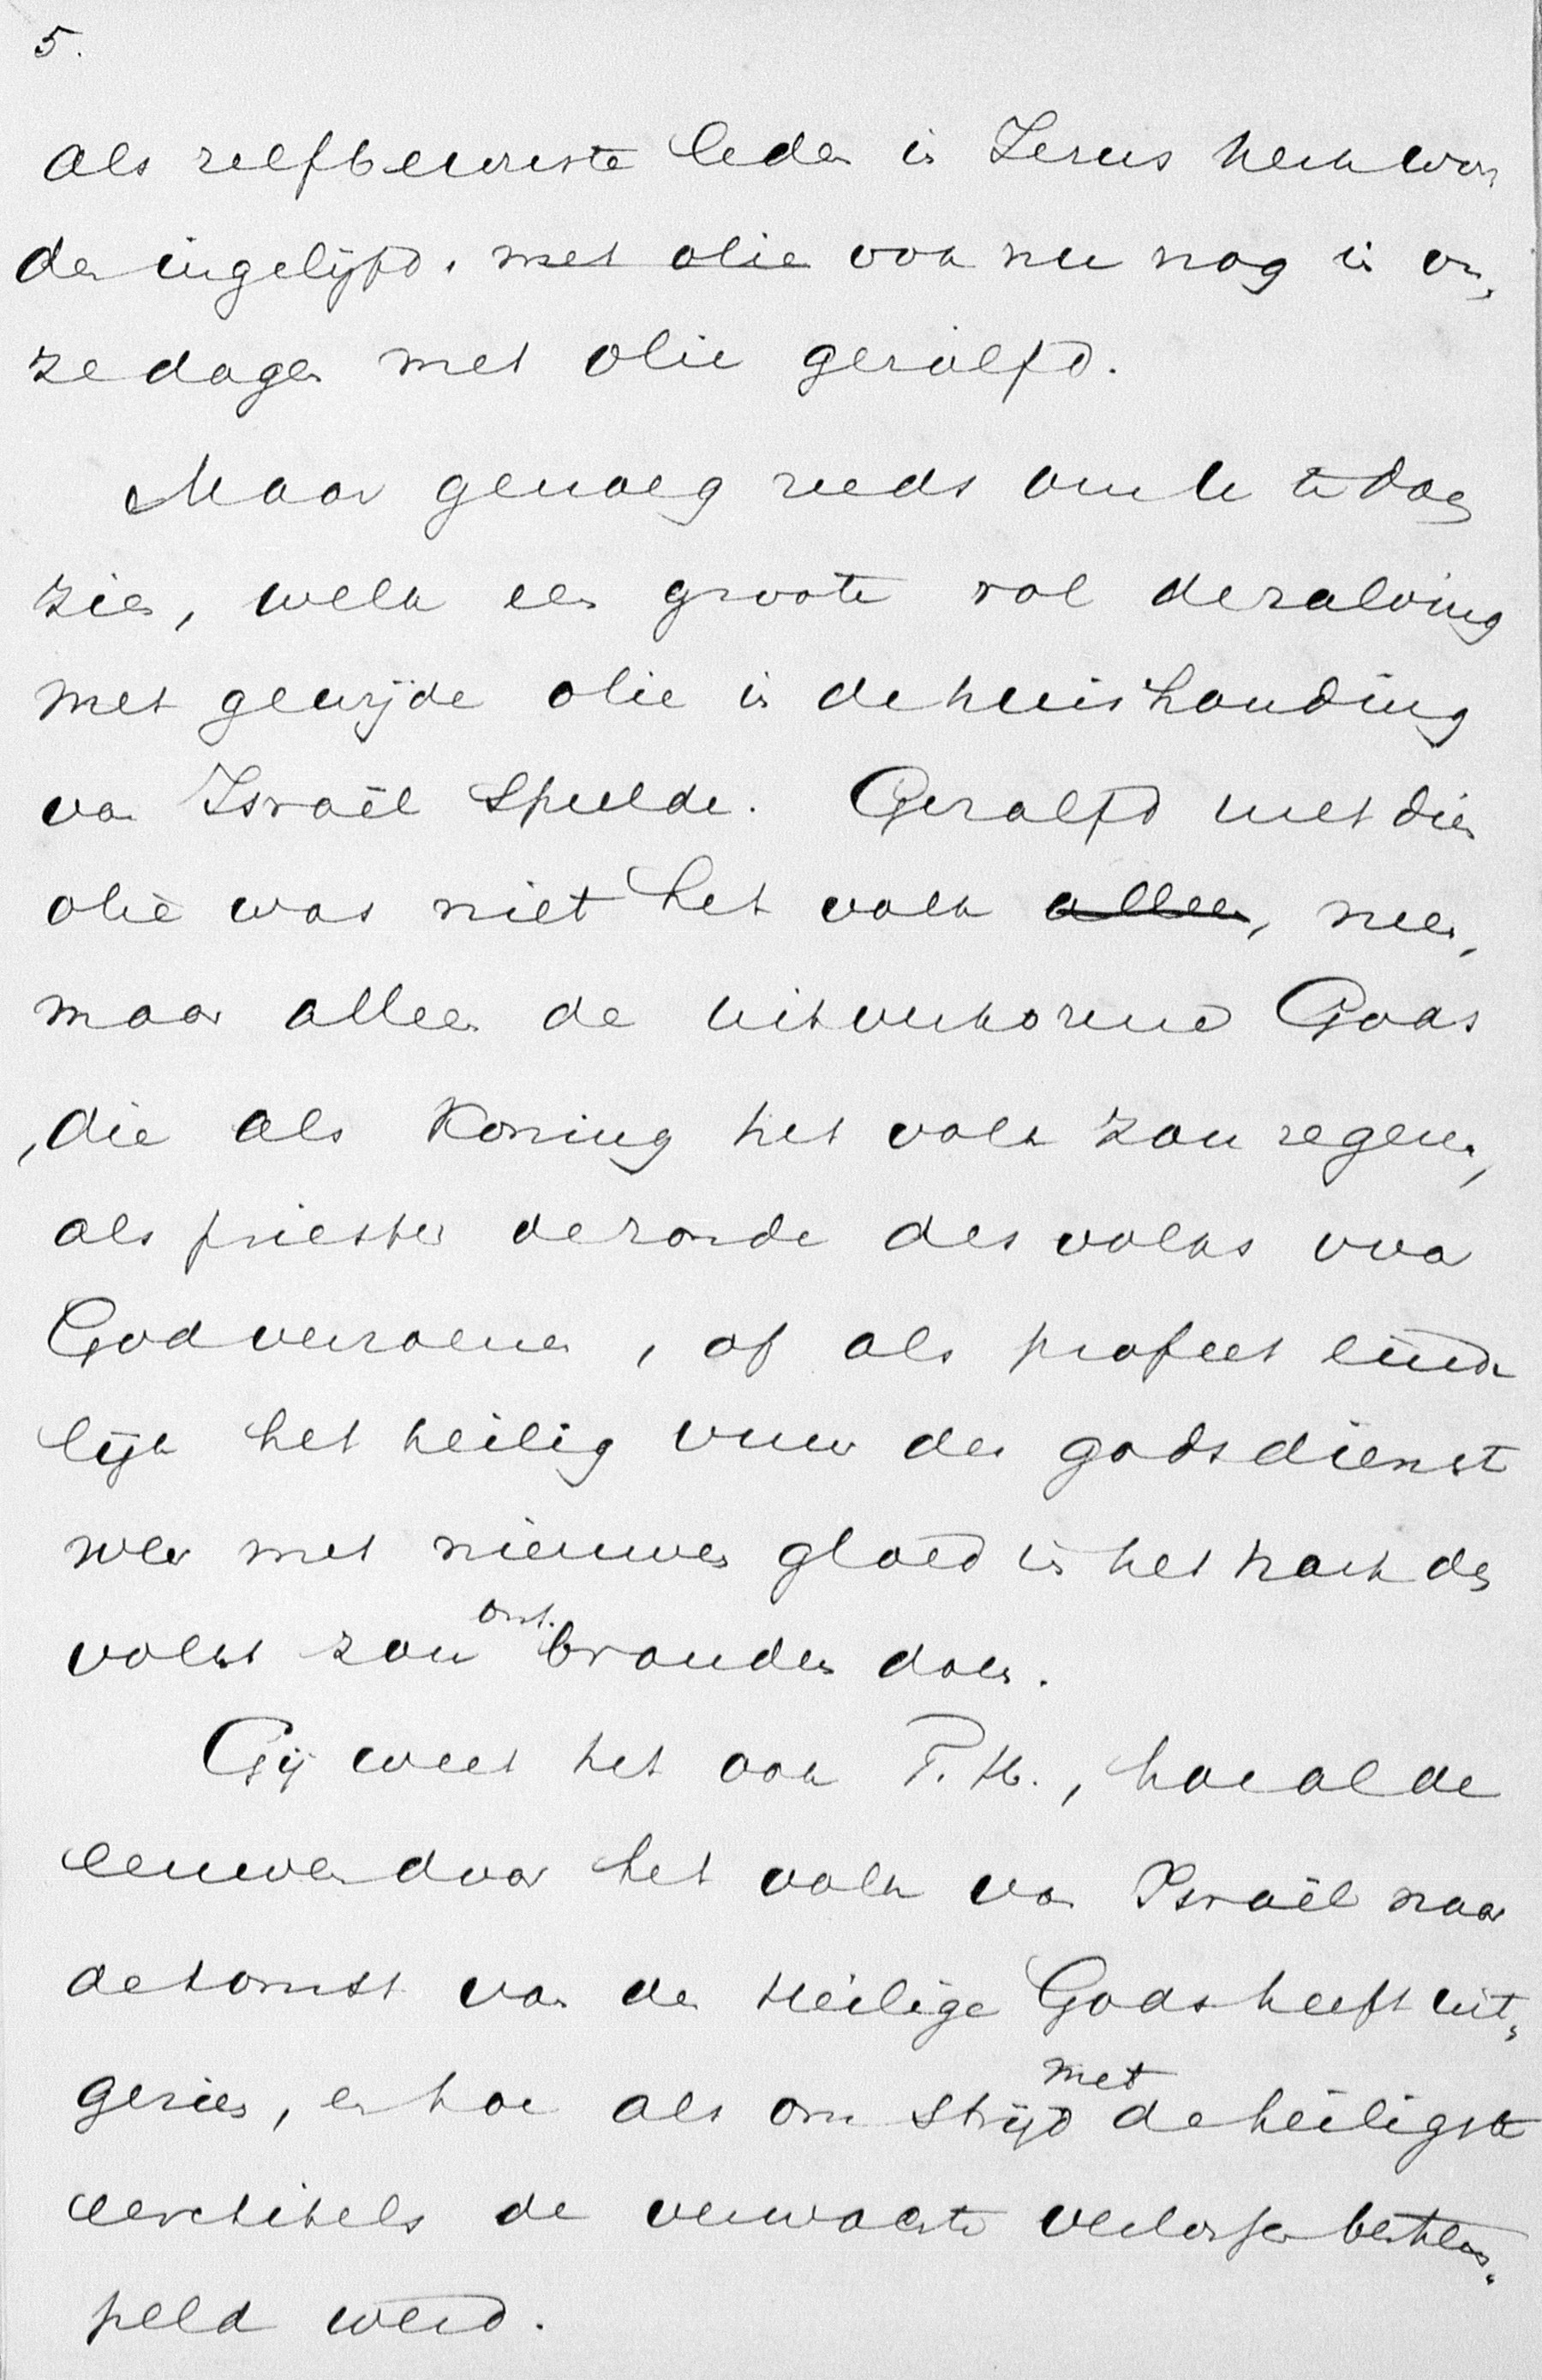 5.
als zelfbewuste leden in Jezus kerk wor
den ingelijfd, met olie ook nu nog in on„
ze dagen met olie gezalfd.
Maar genoeg reeds om U te doen
zien, welk een groote rol de zalving
met gewijde olie in de huishouding
van Israël speelde. Gezalfd met die
olie was niet het volk alleen, neen,
maar alleen de uitverkorene Gods
, die als Koning het volk zou regeren,
als priester de zonde des volks voor
God verzoenen, of als profeet einde
lijk het heilig vuur der godsdienst
weer met nieuwen gloed in het hart des
volks zou ont.branden doen.
Gij weet het ook T. H., hoe al de
eeuwen door het volk van Israël naar
de komst van den Heilige Gods heeft uit„
gezien, en hoe als om strijd met de heiligste
eeretitels de verwachte verlosser bestem„
peld werd.